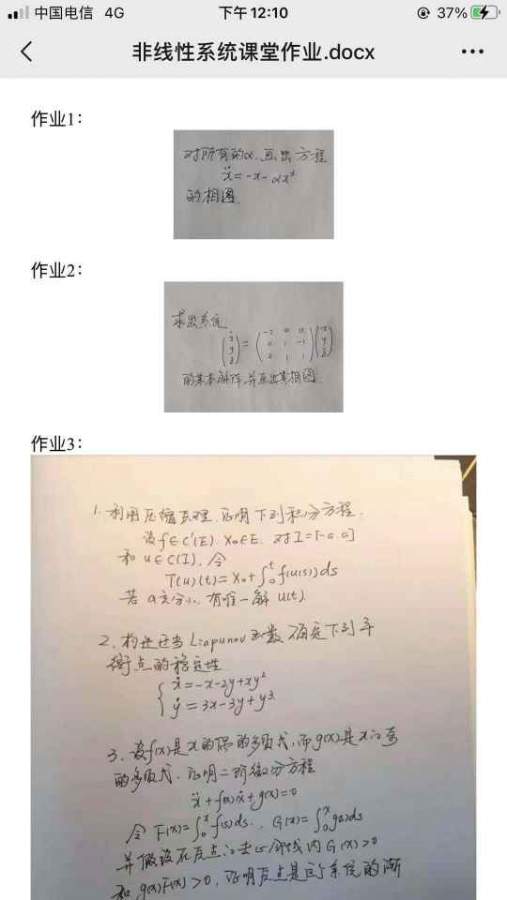 中国电信 4G 下午12:10 37%
非线性系统课堂作业.docx
作业1：
对所有的α，画出方程
ẍ=-x-αx³
的相图.
作业2：
求出系统
的基本解阵，并画出其相图.
作业3：
1. 利用压缩原理，证明下列积分方程.
设f∈C'(E). X₀∈E. 对I=[-a,a]
和 u∈C(I)，令
T(u)(t)=X₀+∫₀ᵗf(u(s))ds
若 a充分小，有唯一解 u(t).
2. 构造适当Liapunov函数确定下列平
衡点的稳定性
ẋ=-x-2y+xy²
ẏ=3x-3y+y³
3. 设f(x)是x的偶的多项式，而g(x)是x的奇
的多项式. 证明二阶微分方程
ẍ+f(x)ẋ+g(x)=0
令 F(x)=∫₀ˣf(s)ds, G(x)=∫₀ˣg(s)ds
并假设在原点的去心邻域内G(x)>0
和 g(x)F(x)>0, 证明原点是这个系统的渐